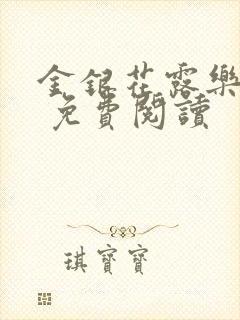 金銀花露樂
免費閱讀
琪寶寶